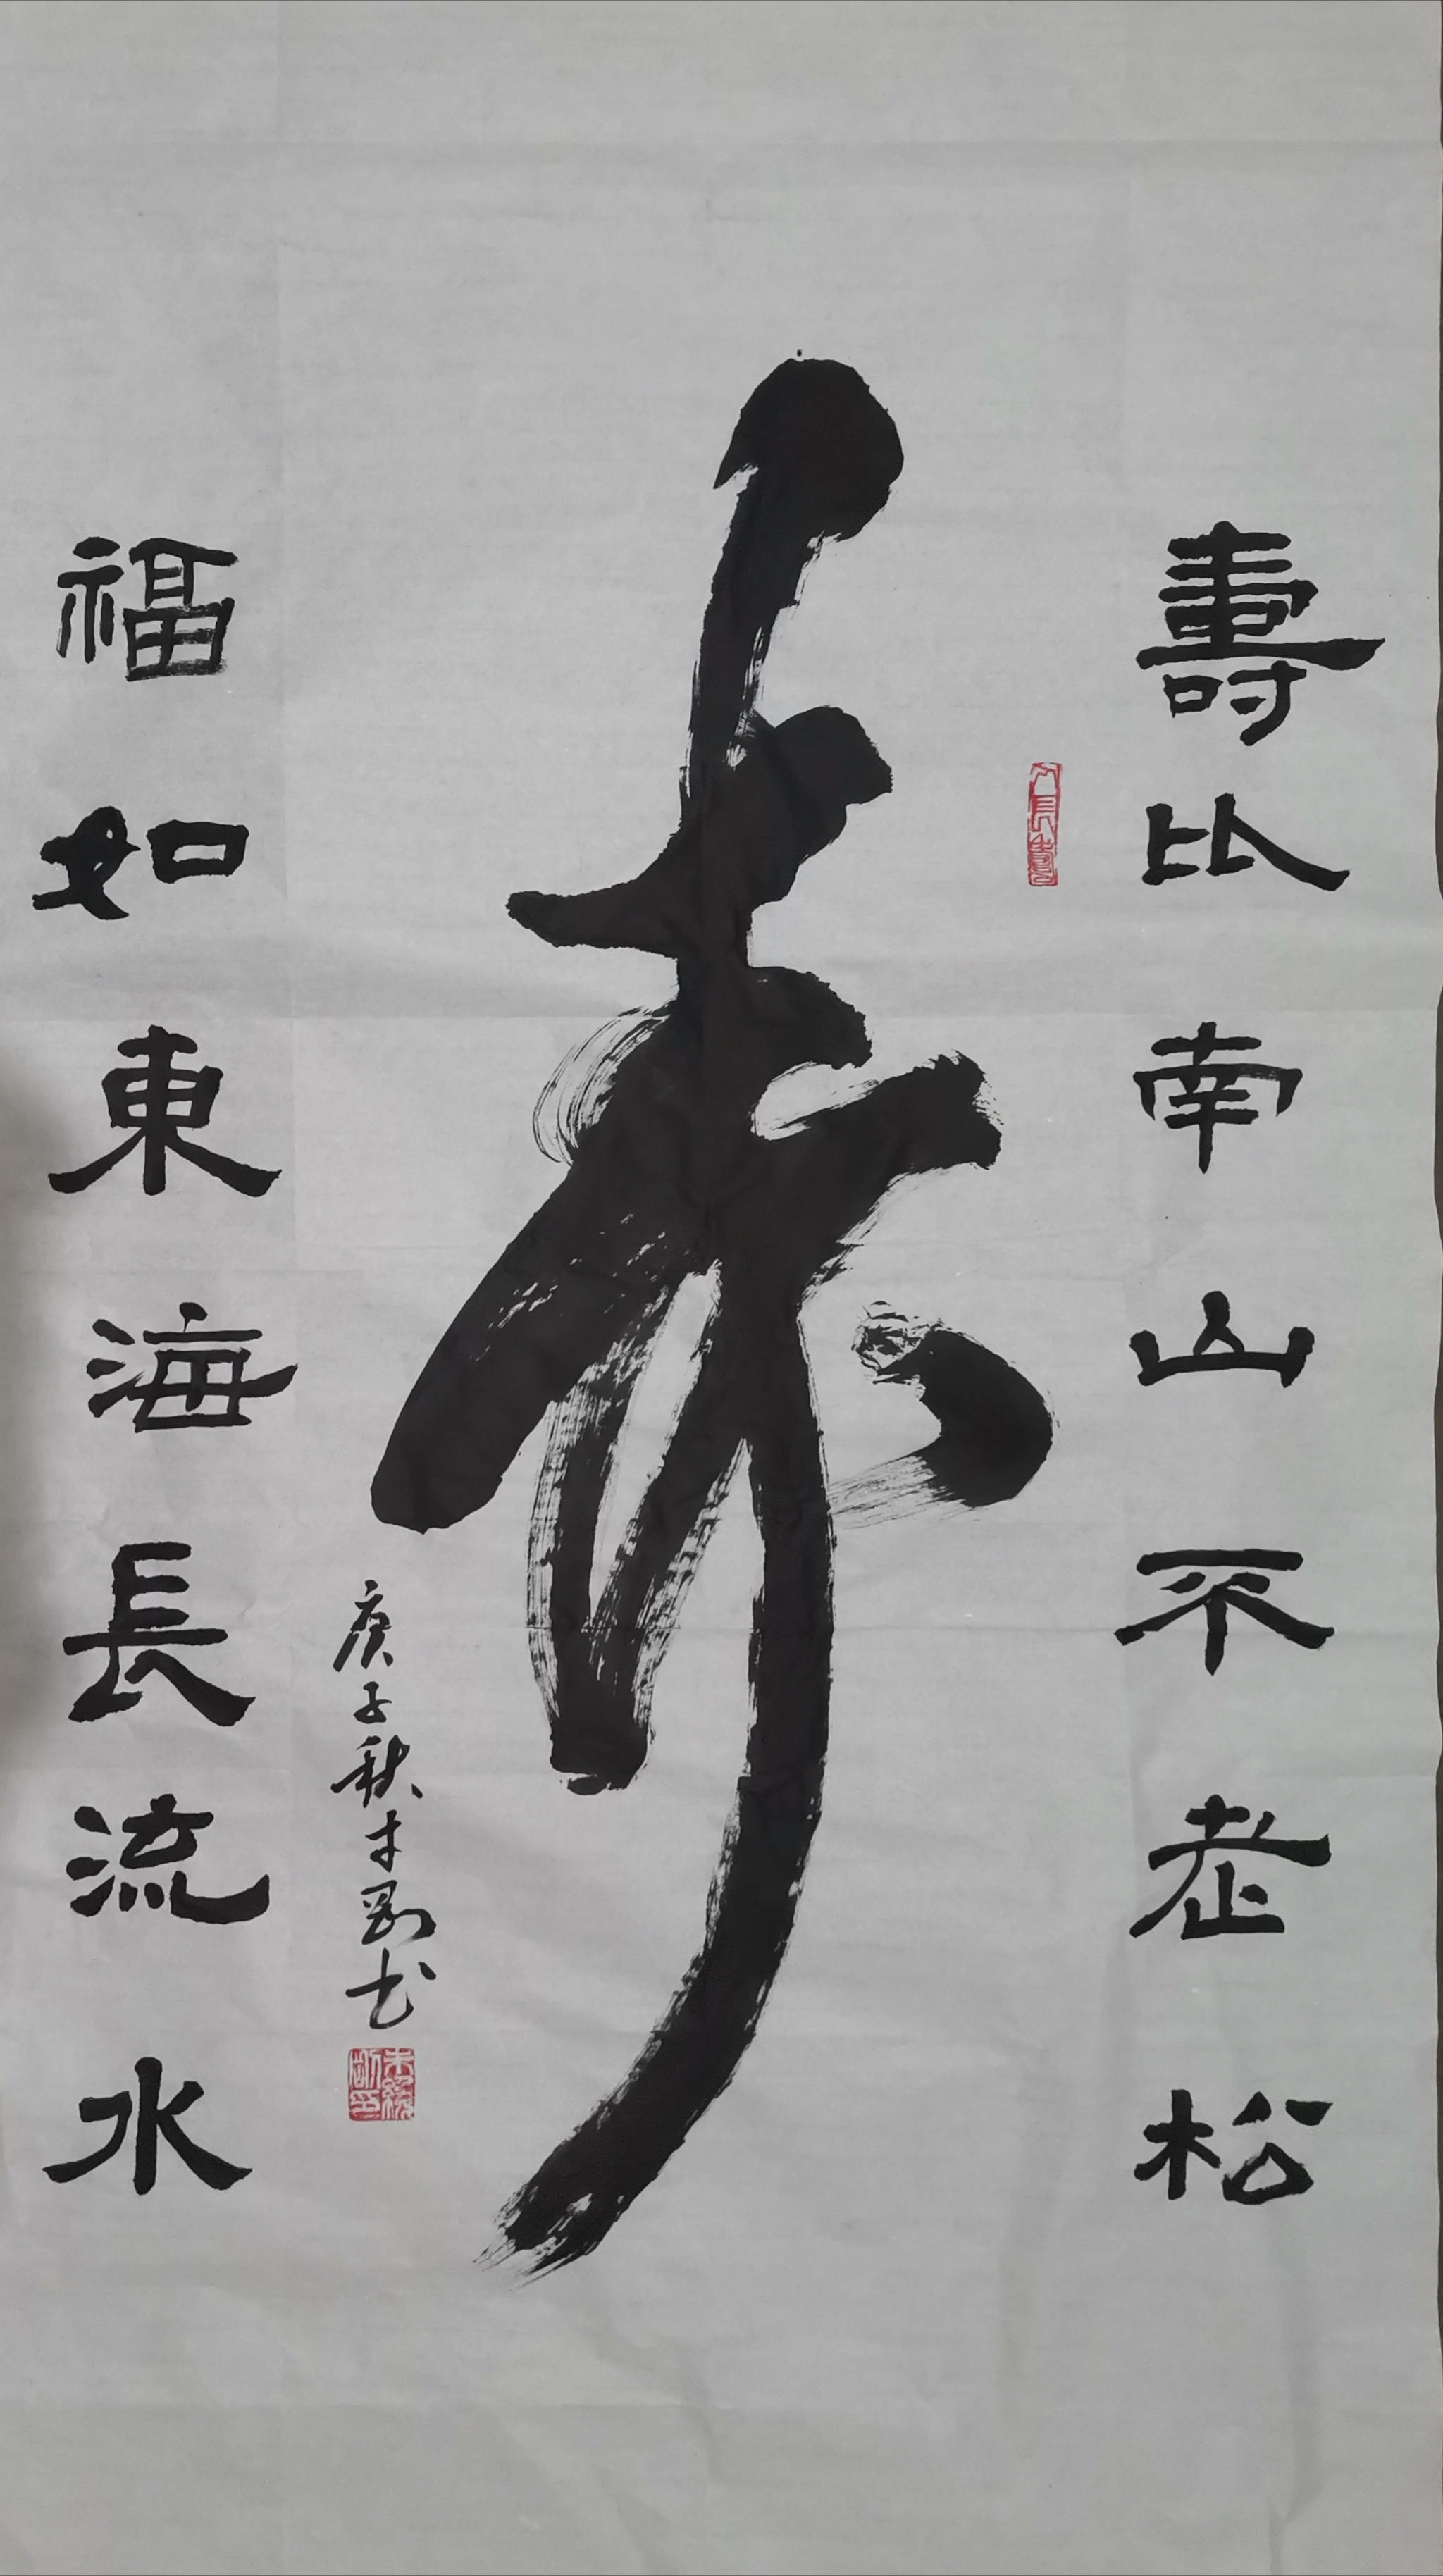 壽比南山不老松
寿
福如東海長流水
庚子秋才剛书